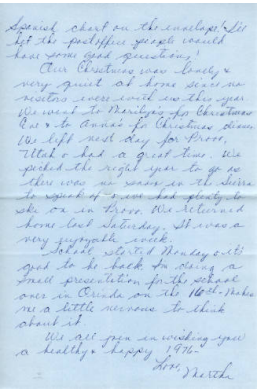 Spanish chart on the envelope. I'll
bet the post office people would
have some good questions!
Our Christmas was lonely &
very quiet at home since no
visitors were with us this year
We went to Marilyn's for Christmas
Eve & to Anna's for Christmas dinner
We left next day for Provo,
Utah & had a great time. We
picked the right year to go as
there was no snow in the Sierra
to speak of & we had plenty to
ski on in Provo. We returned
home last Saturday. It was a
very enjoyable week.
School started Monday & it's
good to be back. I'm doing a
small presentation for the school
over in Orinda on the 16th - makes
me a little nervous to think
about it.
We all join in wishing you
a healthy & happy 1976-
Love,
Martha